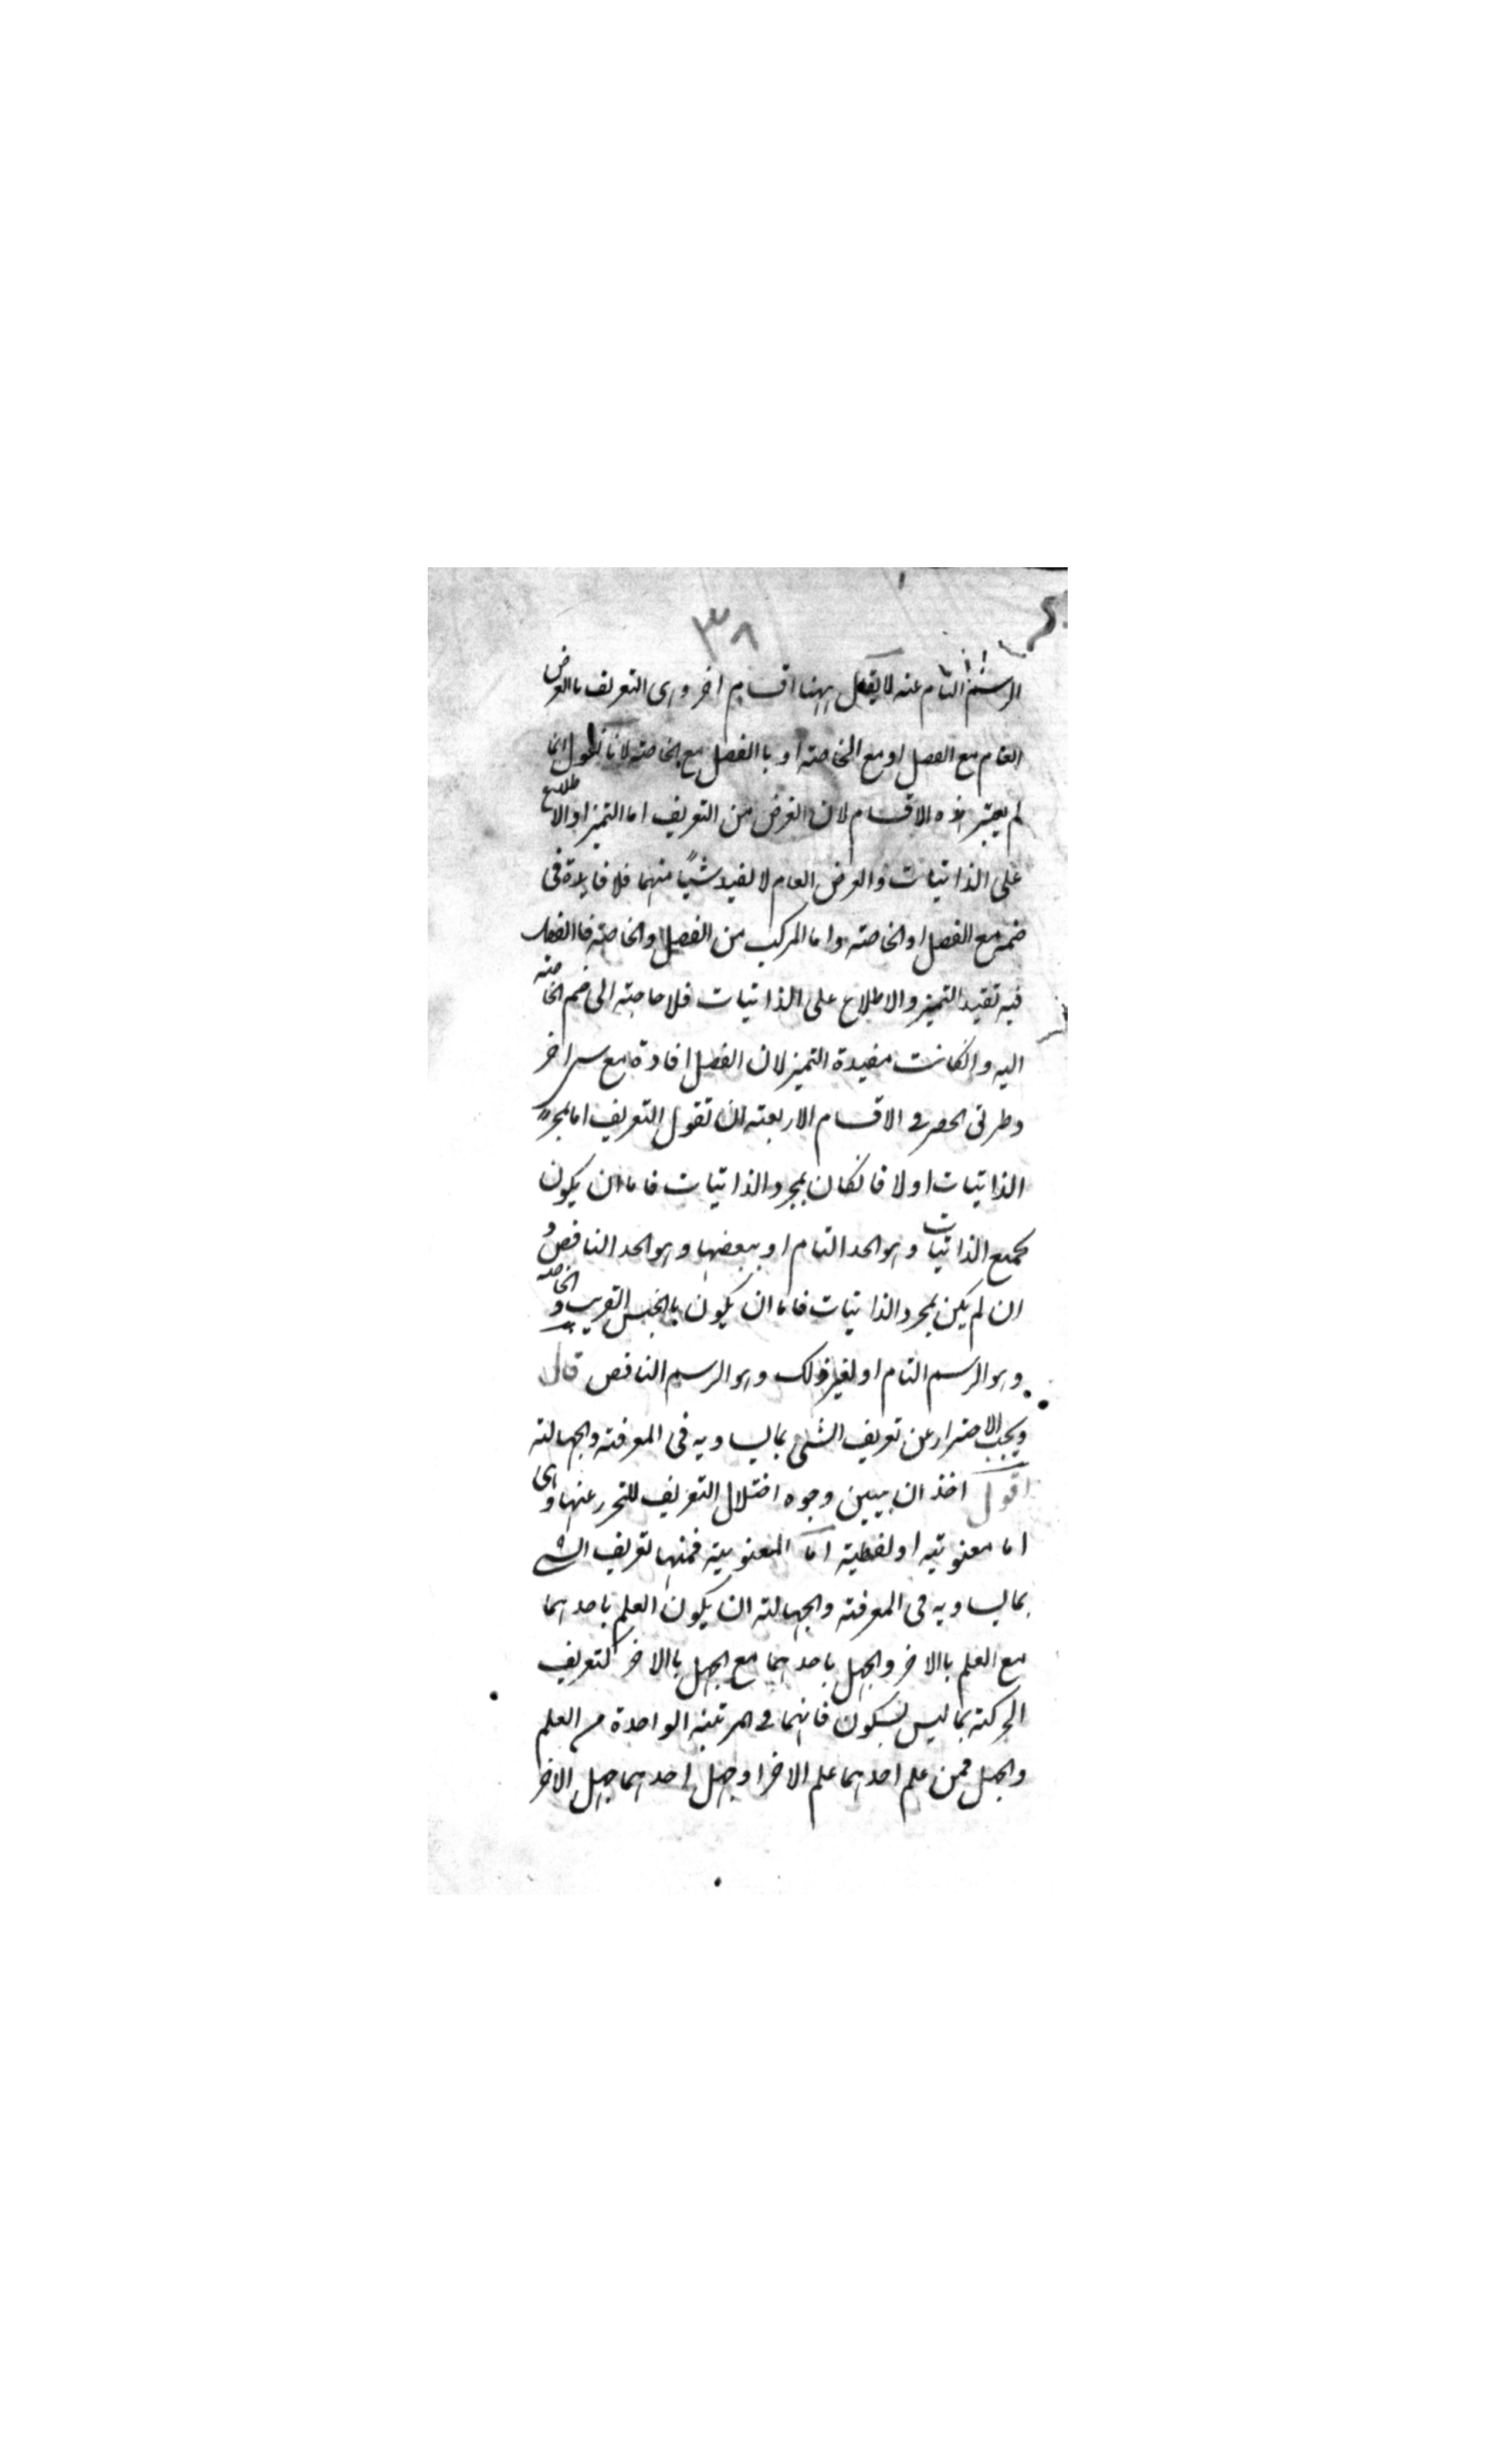 ٣٨
الرسم التام عنه لا يقال ههنا اقسام اخر وهى التعريف باالعرض
العام مع الفصل او مع الخاصته او باالفصل مع الخاصته لانا نقول انما
لم يعتبر هذه الاقسام لان الغرض من التعريف اما التميز او الاطلاع
على الذاتيات والعرض العام لا يفيد شيًا منهما فلا فايدة فى
ضمه مع الفصل او الخاصته واما المركب من الفصل والخاصته فاالفصل
فيه تفيد التميز والاطلاع على الذاتيات فلا حاجته الى ضم الخاصته
اليه وانكانت مفيدة التميز لان الفصل افادة مع اخر
وطريق الحصر فى الاقسام الاربعته ان تقول التعريف اما بمجرد
الذاتيات اولا فانكان بمجرد الذاتيات فاما ان يكون
بجميع الذاتيات وهو الحد التام او ببعضها وهو الحد الناقص و
ان لم يكن بمجرد الذاتيات فاما ان يكون باالجنس القريب والخاصه
وهو الرسم التام او بغير ذلك وهو الرسم الناقص قال
ويجب الاحترار عن تعريف الشئ بما يساويه فى المعرفته والجهالته
اقول اخذ ان يبين وجوه اختلال التعريف للتحرر عنها وهى
اما معنويته او لفظيته اما المعنويته فمنها تعريف الشى
بما يساويه فى المعرفته والجهالته ان يكون العلم باحدهما
مع العلم باالاخر والجهل باحدهما مع الجهل باالاخر كتعريف
الحركته بما ليس بسكون فانهما فى المرتبته الواحدة من العلم
والجهل فمن علم احدهما علم الاخر او جهل احدهما جهل الاخر